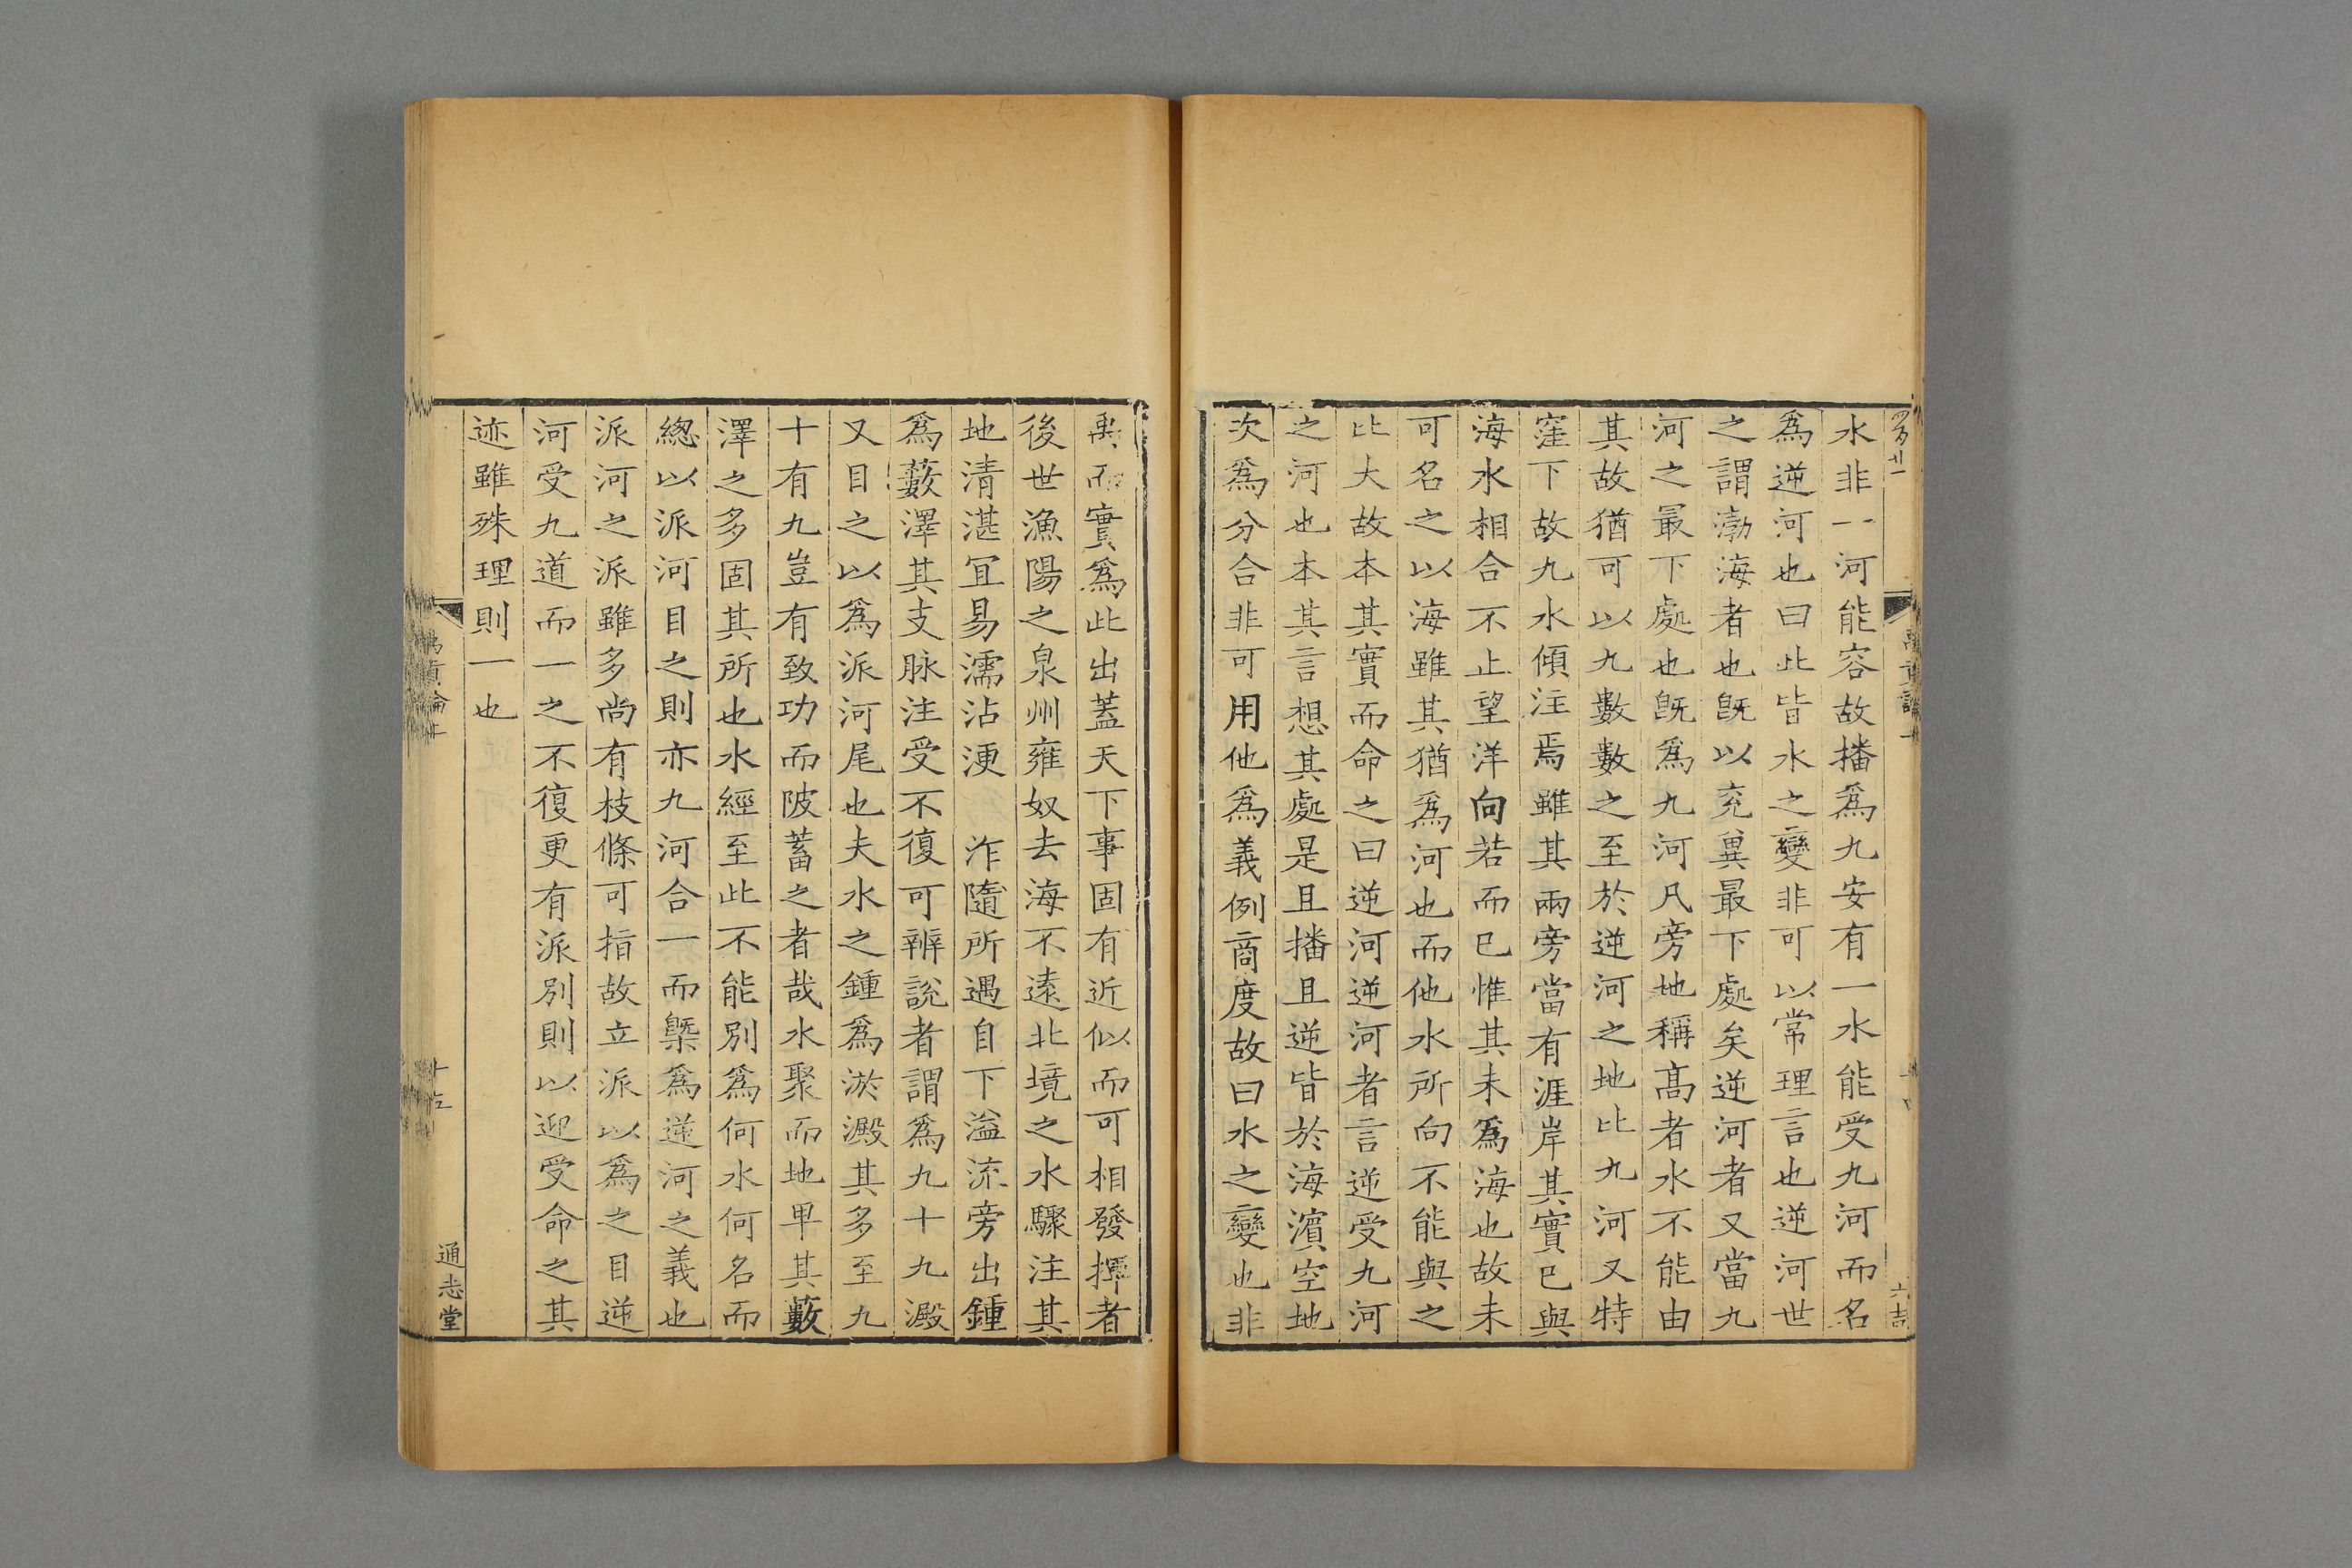 水非一河能容故播爲九安有一水能受九河而名
爲逆河也曰此皆水之變非可以常理言也逆河世
之謂渤海者也旣以兗冀最下處矣逆河者又當九
河之最下處也旣爲九河凡旁地稱髙者水不能由
其故猶可以九數數之至於逆河之地比九河又特
窪下故九水傾注焉雖其兩旁當有涯岸其實已與
海水相合不止望洋向若而已惟其未爲海也故未
可名之以海雖其猶爲河也而他水所向不能與之
比大故本其實而命之曰逆河逆河者言逆受九河
之河也本其言想其處是且播且逆皆於海濵空地
次爲分合非可用他爲義例商度故曰水之變也非
禹而實爲此出蓋天下事固有近似而可相發揮者
後世漁陽之泉州雍奴去海不遠北境之水驟注其
地清湛宜易濡沾浭 泎隨所遇自下溢流旁出鍾
爲藪澤其支脉注受不復可辨說者謂爲九十九澱
又目之以爲派河尾也夫水之鍾爲淤澱其多至九
十有九豈有致功而陂蓄之者哉水聚而地卑其藪
澤之多固其所也水經至此不能別爲何水何名而
緫以派河目之則亦九河合一而槩爲逆河之義也
派河之派雖多尚有枝條可指故立派以爲之目逆
河受九道而一之不復更有派別則以迎受命之其
迹雖殊理則一也
禹貢論上
通志堂